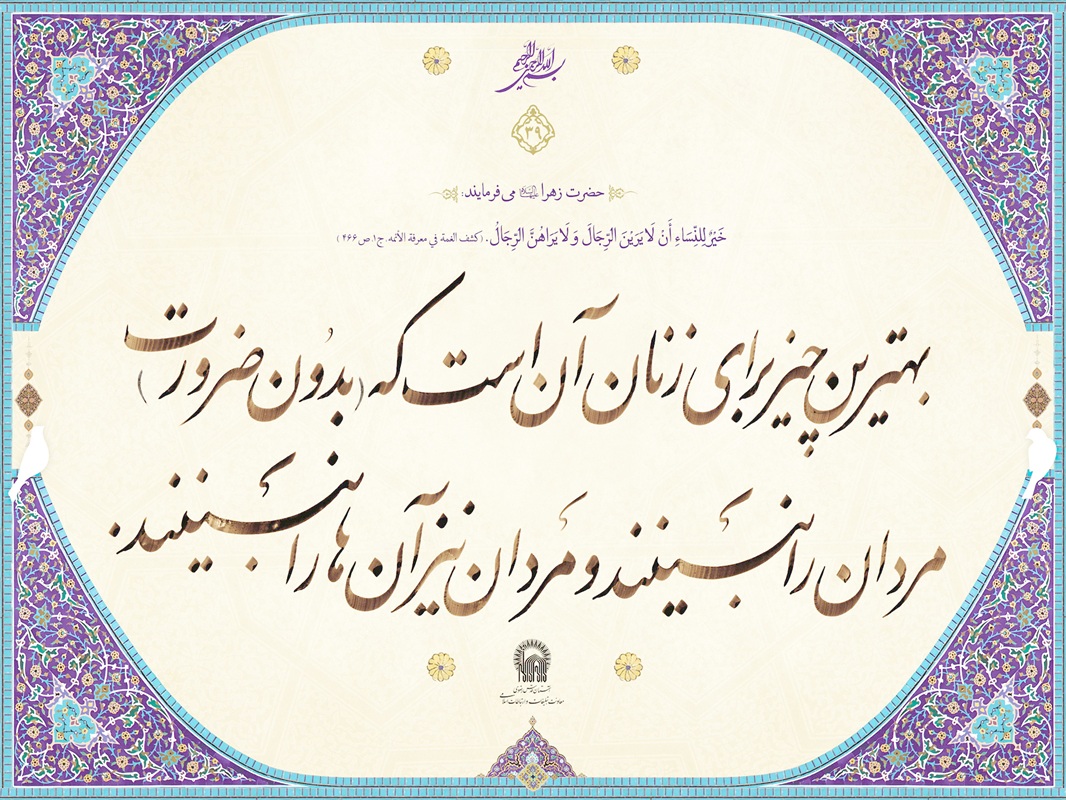 بسم الله الرحمن الرحیم
۳۹
حضرت زهرا علیهاالسلام می‌فرمایند:
خَيْرٌ لِلنِّسَاءِ أَنْ لَا يَرَيْنَ الرِّجَالَ وَ لَا يَرَاهُنَّ الرِّجَالُ. (کشف الغمة في معرفة الأئمه. ج۱. ص ۴۶۶)
بهترین چیز برای زنان آن است که (بدون ضرورت)
مردان را نبینند و مردان نیز آن ها را نبینند.
آستان قدس رضوی
معاونت تبلیغات و ارتباطات اسلامی